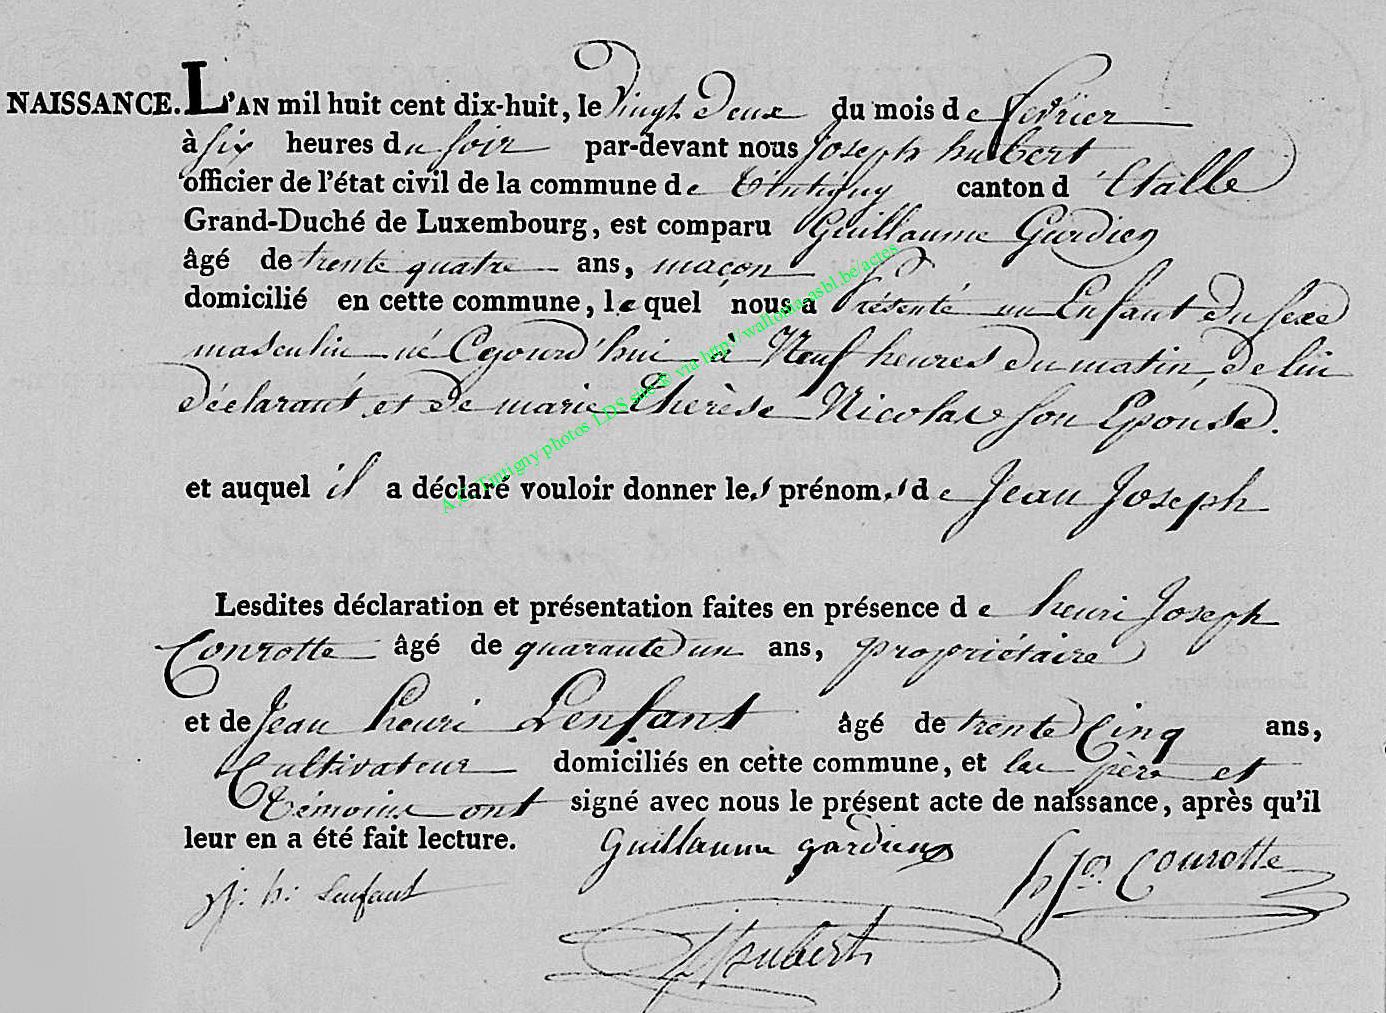 NAISSANCE. L'AN mil huit cent dix-huit, le Vingt Deux du mois de fevrier
à six heures du soir par-devant nous Joseph hubert
officier de l'état civil de la commune de Tintigny canton d'Etalle
Grand-Duché de Luxembourg, est comparu Guillaume Gardien
âgé de trente quatre ans, maçon
domicilié en cette commune, lequel nous a Présenté un Enfant du sexe
masculin né Cejourd'hui à Neuf heures du matin, de lui
déclarant, et de marie Thérèse Nicolas son Epouse.
et auquel il a déclaré vouloir donner les prénoms de Jean Joseph
Lesdites déclaration et présentation faites en présence de henri Joseph
Courotte âgé de quarante un ans, propriétaire
et de Jean henri Lenfant âgé de trente Cinq ans,
Cultivateur domiciliés en cette commune, et les père et
témoins ont signé avec nous le présent acte de naissance, après qu'il
leur en a été fait lecture. Guillaume gardien
h Jos Courotte
j: h: Lenfant
Hubert
A.C. Tintigny photos LDS site © via http://wallonia-asbl.be/actes